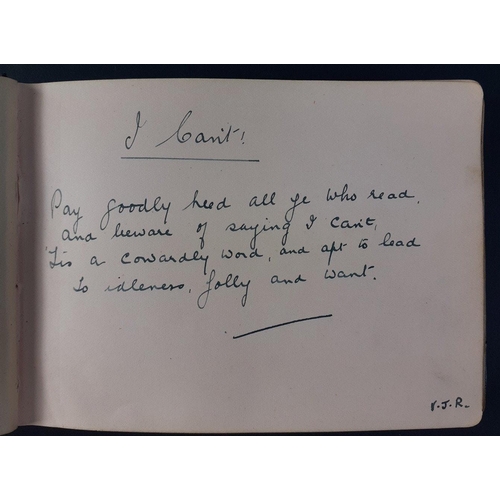 I Can't!
Pay goodly heed all ye who read,
and beware of saying I can't,
'Tis a cowardly word, and apt to lead
To idleness, folly and want.
V.J.R.